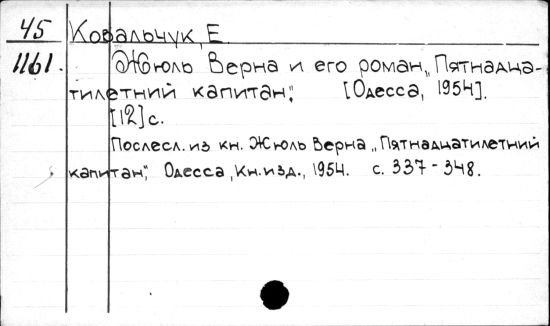 45 Ковальчук, Е.
1161. Жюль Верна и его роман „Пятнадца-
тилетний капитан“. [Одесса, 1954].
[12] с.
Послесл. из кн. Жюль Верна „Пятнадцатилетний
капитан“, Одесса, Кн.изд., 1954. с. 337-348.